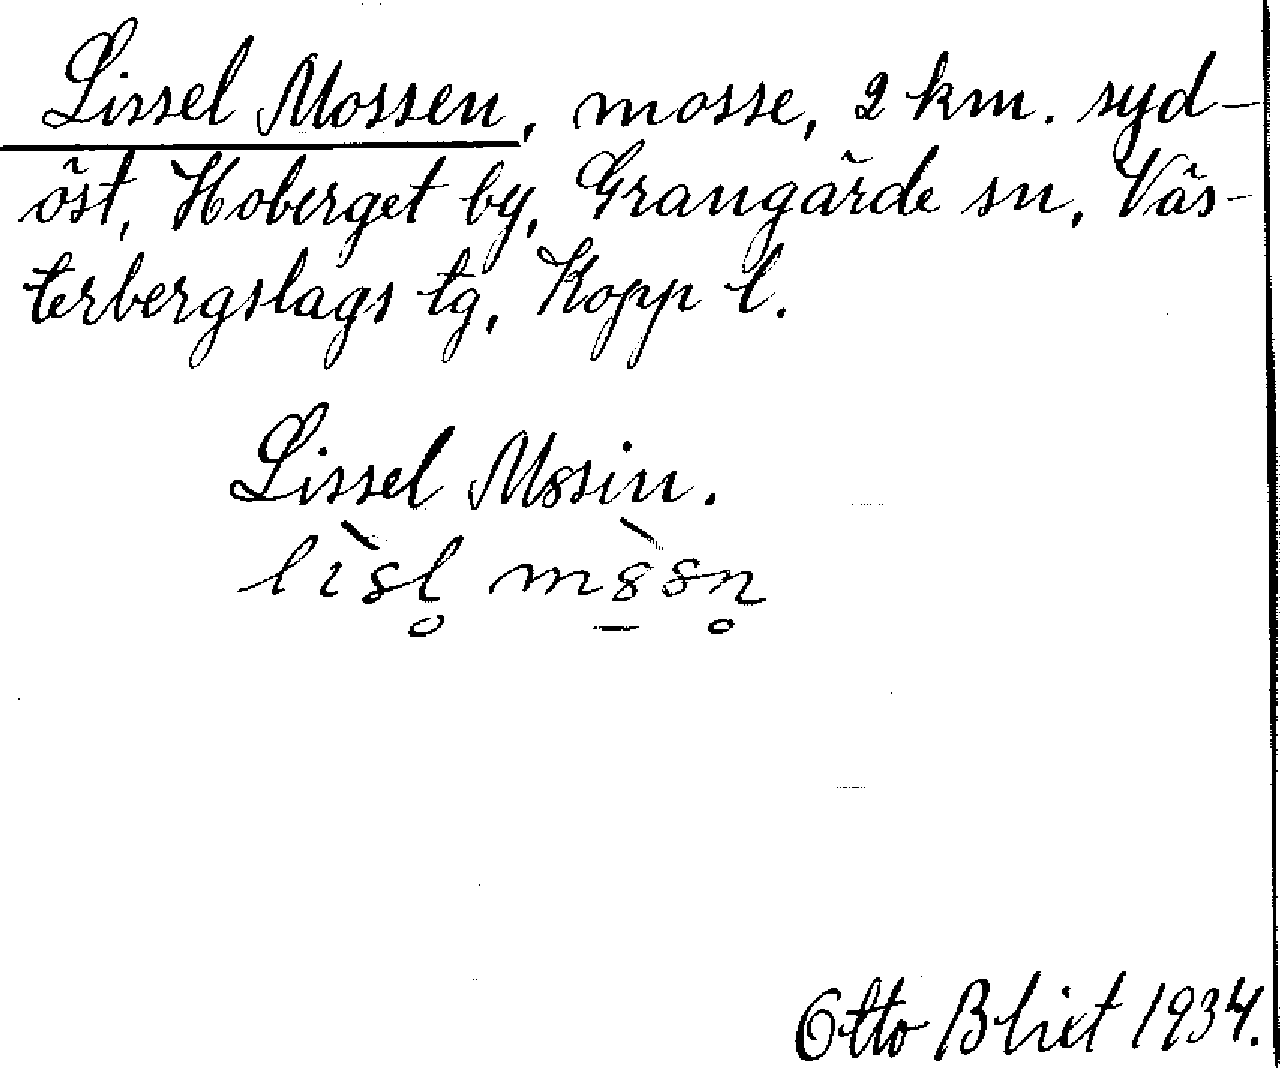 Lissel Mossen, mosse, 2 km. syd-
öst, Hoberget by, Grangärde sn, Väs-
terbergslags tg, Kopp l.
Lissel M8sin.
lìsl̥ m8̲̀sn̥
Otto Blixt 1934.